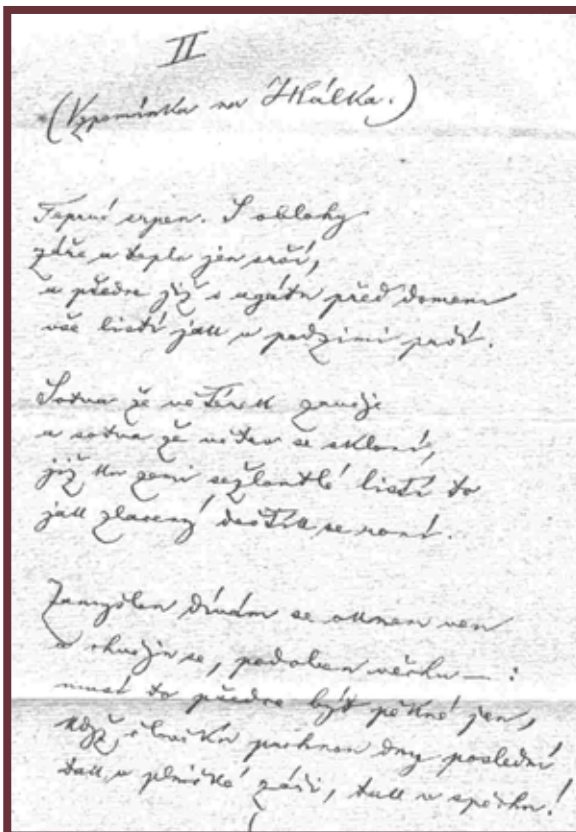 II
(Vzpomínka na Hálka.)
Teprvé srpen. S oblohy
záře a teplo jen srší,
a předce již s agátu před domem
vše listí jak v podzimi prší.
Sotva že větérek zavěje
a sotva že větev se skloní,
již ku zemi sežloutlé listí to
jak zlacený deštík se roní.
Zamyšlen dívám se oknem ven
a chvěju se, podoben věchu — :
musí to předce být pěkné jen,
když člověku prchnou dny poslední
tak v plničké záři, tak v spěchu!